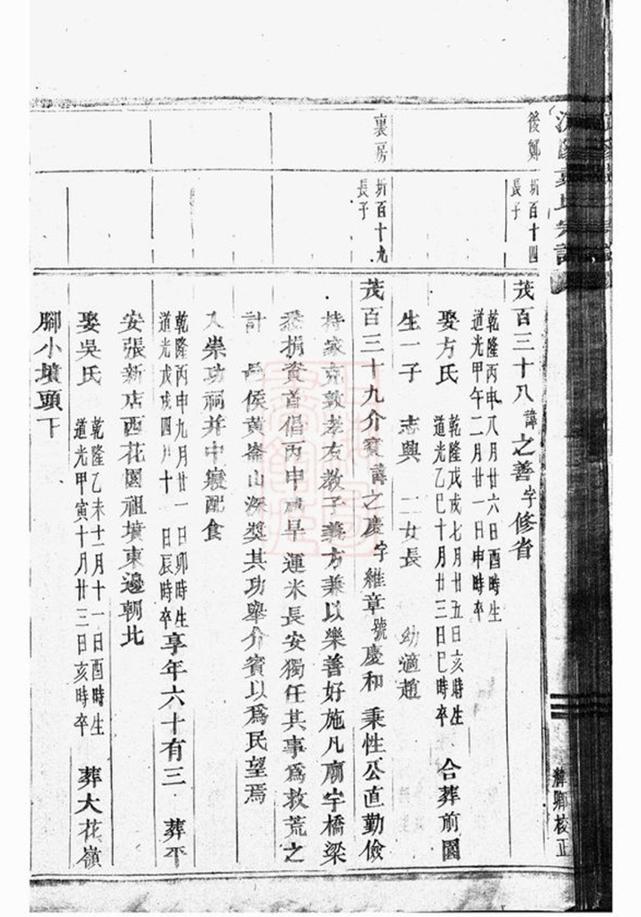 後鄭 圻百十四
長子
茂百三十八諱之善字修省
乾隆丙申八月廿六日酉時生
道光甲午二月廿一日申時卒
娶方氏
乾隆戊戌七月廿五日亥時生
道光乙巳十月廿三日巳時卒
合葬前園
生一子 志興 二女長 幼適趙
裏房 圻百十九
長子
茂百三十九介賓諱之慶字維章號慶和 秉性公直勤儉
持家克敦孝友教子義方兼以樂善好施凡廟宇橋梁
悉捐資首倡丙申歲旱運米長安獨任其事為救荒之
計 邑侯黃崙山深獎其功舉介賓以為民望焉
入崇功祠并中癡配食
乾隆丙申九月廿一日卯時生
道光戊戌四月十 日辰時卒
享年六十有三 葬平
安張新店西花園祖墳東邊朝北
娶吳氏
乾隆乙未十二月十一日酉時生
道光甲寅十月廿三日亥時卒
葬大花嶺
腳小墳頭下
校正